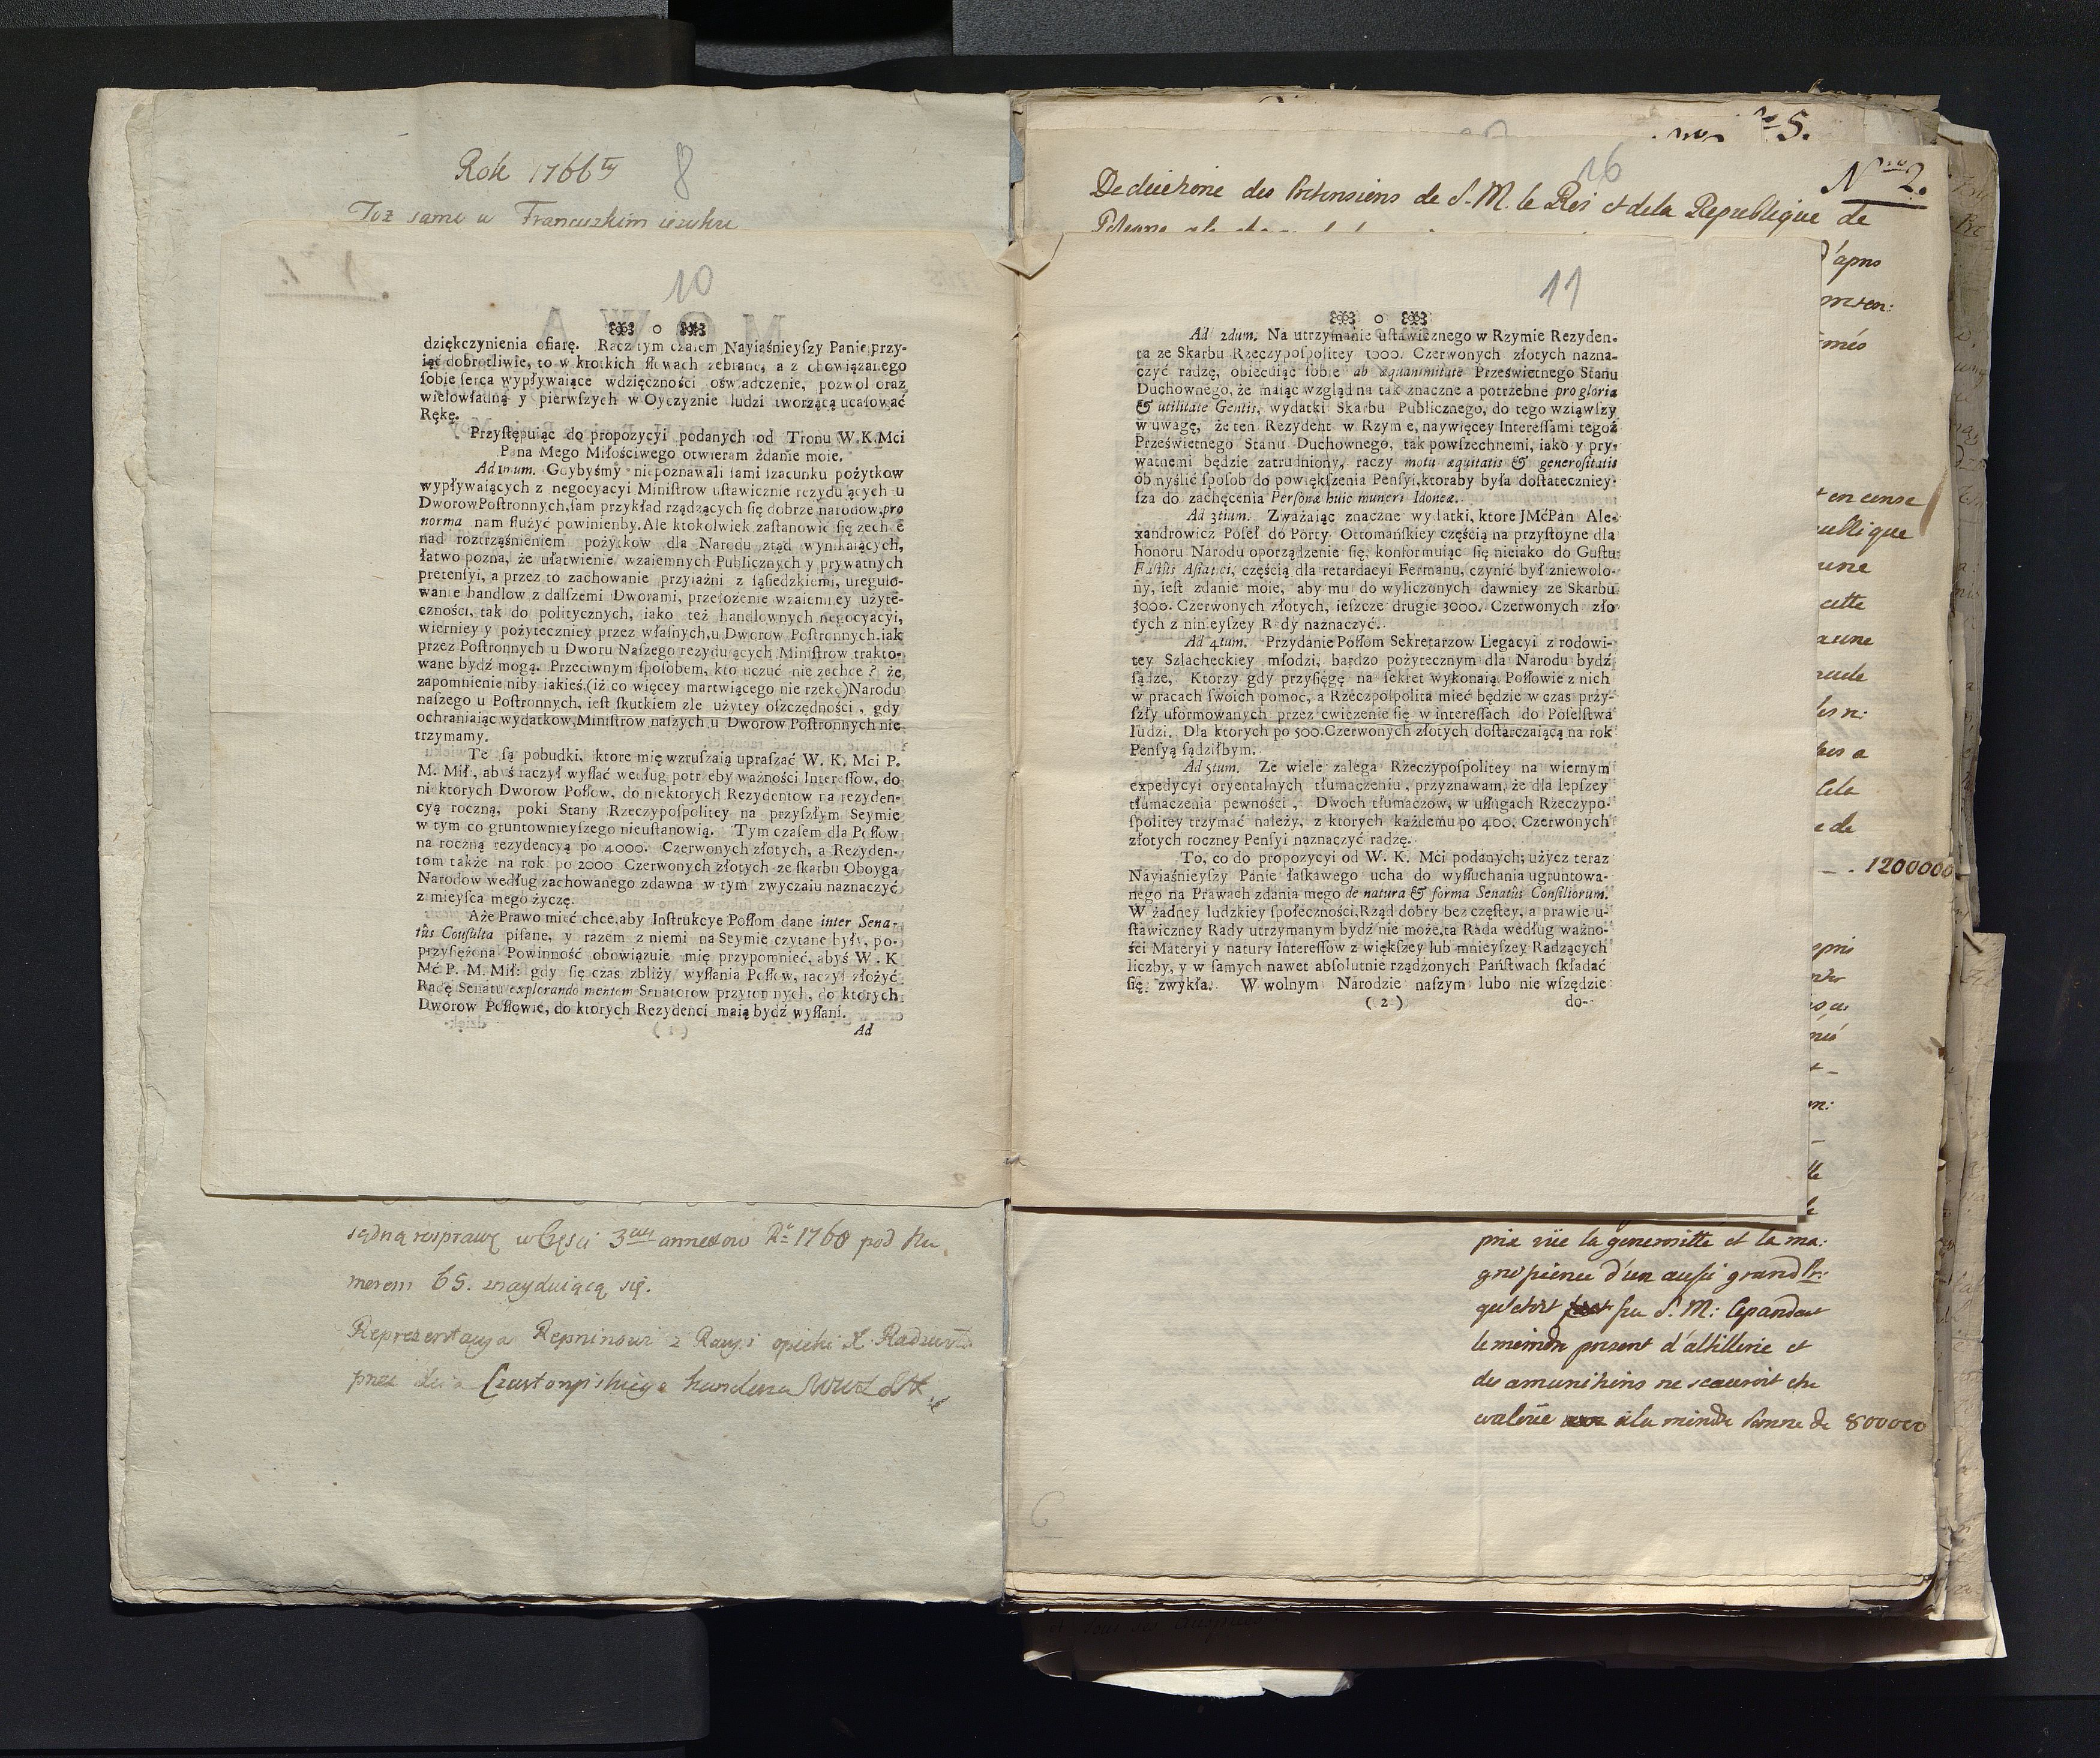 Rok 1766ty 8
Toż samo w Francuzkim ięzyku
10
dziękczynienia ofiarę. Racz tym czaſem Nayiaśnieyſzy Panie przy-
iąć dobrotliwie, to w krotkich ſłowach zebrane, a z obowiązanego
ſobie ſerca wypływaiące wdzięczności oświadczenie, pozwol oraz
wielowładną y pierwſzych w Oyczyznie ludzi tworzącą ucałować
Rękę.
Przyſtępuiąc do propozycyi podanych od Tronu W. K Mci
Pana Mego Miłościwego otwieram zdanie moie.
Ad 1mum. Gdybyśmy niepoznawali ſami ſzacunku pożytkow
wypływaiących z negocyacyi Miniſtrow uſtawicznie rezyduiących u
Dworow Poſtronnych, ſam przykład rządzących ſię dobrze narodow, pro
norma nam ſłużyć powinienby. Ale ktokolwiek zaſtanowić ſię zechce
nad roztrząśnieniem pożytkow dla Narodu ztąd wynikaiących,
łatwo pozna, że ułatwienie wzaiemnych Publicznych y prywatnych
pretenſyi, a przez to zachowanie przyiaźni z ſąſiedzkiemi, uregulo-
wanie handlow z dalſzemi Dworami, przełożenie wzaiemney użyte-
czności, tak do politycznych, iako też handlownych negocyacyi,
wierniey y pożyteczniey przez właſnych, u Dworow Poſtronnych, iak
przez Poſtronnych u Dworu Naſzego rezyduiących Miniſtrow trakto-
wane bydź mogą. Przeciwnym ſpoſobem, kto uczuć nie zechce? że
zapomnienie niby iakieś, (iż co więcey martwiącego nie rzekę) Narodu
naſzego u Poſtronnych, ieſt ſkutkiem zle użytey oſzczędności, gdy
ochraniaiąc wydatkow, Miniſtrow naſzych u Dworow Poſtronnych nie
trzymamy.
Te ſą pobudki, ktore mię wzruſzaią upraſzać W. K. Mci P.
M. Mił, abyś raczył wyſłać według potrzeby ważności Intereſſow, do
niektorych Dworow Poſłow, do niektorych Rezydentow na rezyden-
cyą roczną, poki Stany Rzeczypoſpolitey na przyſzłym Seymie
w tym co gruntownieyſzego nieuſtanowią. Tym czaſem dla Poſłow
na roczną rezydencyą po 4000. Czerwonych złotych, a Rezyden-
tom także na rok po 2000 Czerwonych złotych ze ſkarbu Oboyga
Narodow według zachowanego zdawna w tym zwyczaiu naznaczyć
z mieyſca mego życzę.
Aże Prawo mieć chce, aby Inſtrukcye Poſłom dane inter Sena-
tûs Conſulta piſane, y razem z niemi na Seymie czytane były, po-
przyſiężona Powinność obowiązuie mię przypomnieć, abyś W. K
Mć P. M. Mił: gdy ſię czas zbliży wyſłania Poſłow, raczył złożyć
Radę Senatu explorando mentem Senatorow przytomnych, do ktorych
Dworow Poſłowie, do ktorych Rezydenci maią bydź wyſłani.
Ad
ſądną rosprawę w Części 3ciey annexow Ru 1768 pod Nu
merem 65. znayduiącą się.
Reprezentacya Repninowi z Racyi opieki X Radziwiłł
przez Czartoryskiego Kanclerza
No 5.
16
Nro 2.
de S. M. le Roi et de la Republique de
d'apres
en cense
publique
une
cette
aune
cela
1200000
11
Ad 2dum. Na utrzymanie uſtawicznego w Rzymie Rezyden-
ta ze Skarbu Rzeczypoſpolitey 1000. Czerwonych złotych nazna-
czyć radzę, obiecuiąc ſobie ab æquanimitate Prześwietnego Stanu
Duchownego, że maiąc wzgląd na tak znaczne a potrzebne pro gloria
& utilitate Gentis, wydatki Skarbu Publicznego, do tego wziąwſzy
w uwagę, że ten Rezydent w Rzymie, naywięcey Intereſſami tegoż
Prześwietnego Stanu Duchownego, tak powſzechnemi, iako y pry-
watnemi będzie zatrudniony, raczy motu æquitatis & generoſitatis
obmyślić ſpoſob do powiękſzenia Penſyi, ktoraby była doſtateczniey-
ſza do zachęcenia Perſonæ huic muneri Idoneæ.
Ad 3tium. Zważaiąc znaczne wydatki, ktore JMćPan Ale-
xandrowicz Poſeł do Porty Ottomańſkiey częścią na przyſtoyne dla
honoru Narodu oporządzenie ſię, konformuiąc ſię nieiako do Guſtu
Faſtûs Aſiatici, częścią dla retardacyi Fermanu, czynić był zniewolo-
ny, ieſt zdanie moie, aby mu do wyliczonych dawniey ze Skarbu
3000. Czerwonych złotych, ieſzcze drugie 3000. Czerwonych zło
tych z ninieyſzey Rady naznaczyć.
Ad 4tum. Przydanie Poſłom Sekretarzow Legacyi z rodowi-
tey Szlacheckiey młodzi, bardzo pożytecznym dla Narodu bydź
ſądzę, Ktorzy gdy przyſięgę na ſekret wykonaią Poſłowie z nich
w pracach ſwoich pomoc, a Rzeczpoſpolita mieć będzie w czas przy-
ſzły uformowanych przez cwiczenie ſię w intereſſach do Poſelſtwa
ludzi. Dla ktorych po 500. Czerwonych złotych doſtarczaiącą na rok
Penſyą ſądziłbym.
Ad 5tum. Ze wiele zalega Rzeczypoſpolitey na wiernym
expedycyi oryentalnych tłumaczeniu, przyznawam, że dla lepſzey
tłumaczenia pewności, Dwoch tłumaczow, w uſługach Rzeczypo-
ſpolitey trzymać należy, z ktorych każdemu po 400. Czerwonych
złotych roczney Penſyi naznaczyć radzę.
To, co do propozycyi od W. K. Mći podanych; użycz teraz
Nayiaśnieyſzy Panie łaſkawego ucha do wyſłuchania ugruntowa-
nego na Prawach zdania mego de natura & forma Senatûs Conſiliorum.
W żadney ludzkiey ſpołeczności, Rząd dobry bez częſtey, a prawie u-
ſtawiczney Rady utrzymanym bydź nie może, ta Rada według ważno-
ści Materyi y natury Intereſſow z więkſzey lub mnieyſzey Radzących
liczby, y w ſamych nawet abſolutnie rządzonych Pańſtwach ſkładać
ſię zwykła. W wolnym Narodzie naſzym lubo nie wſzędzie
(2) do-
la generositte et la ma:
d'un aussi grand
feu S. M: Cependant
le moindre present d'altillerie et
des amunitions ne scauroit etre
a la moindre somme de 800000
6